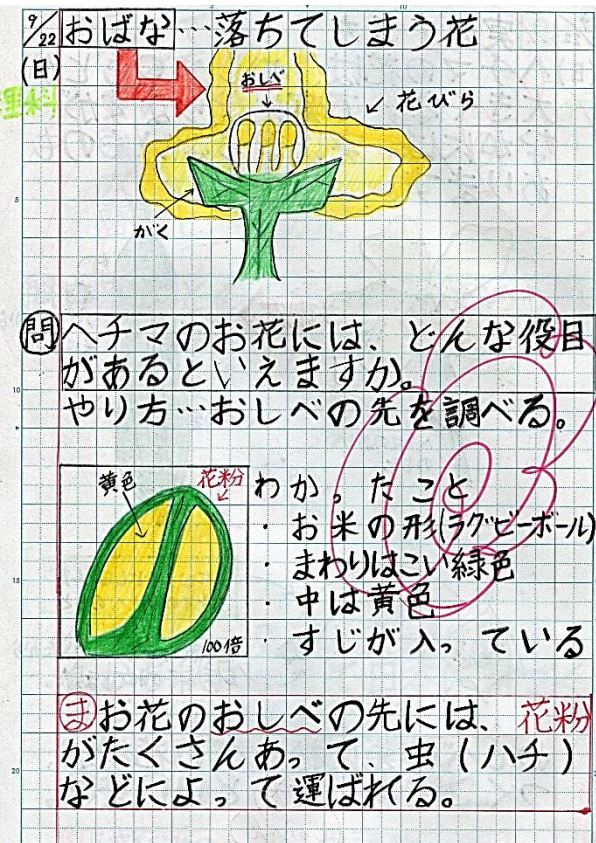 9/22 おばな…落ちてしまう花
(日)
理科
おしべ
花びら
がく
問 ヘチマのお花には、どんな役目
があるといえますか。
やり方…おしべの先を調べる。
黄色
花粉
100倍
わかったこと
・お米の形(ラグビーボール)
・まわりはこい緑色
・中は黄色
・すじが入っている
ま お花のおしべの先には、花粉
がたくさんあって、虫(ハチ)
などによって運ばれくる。